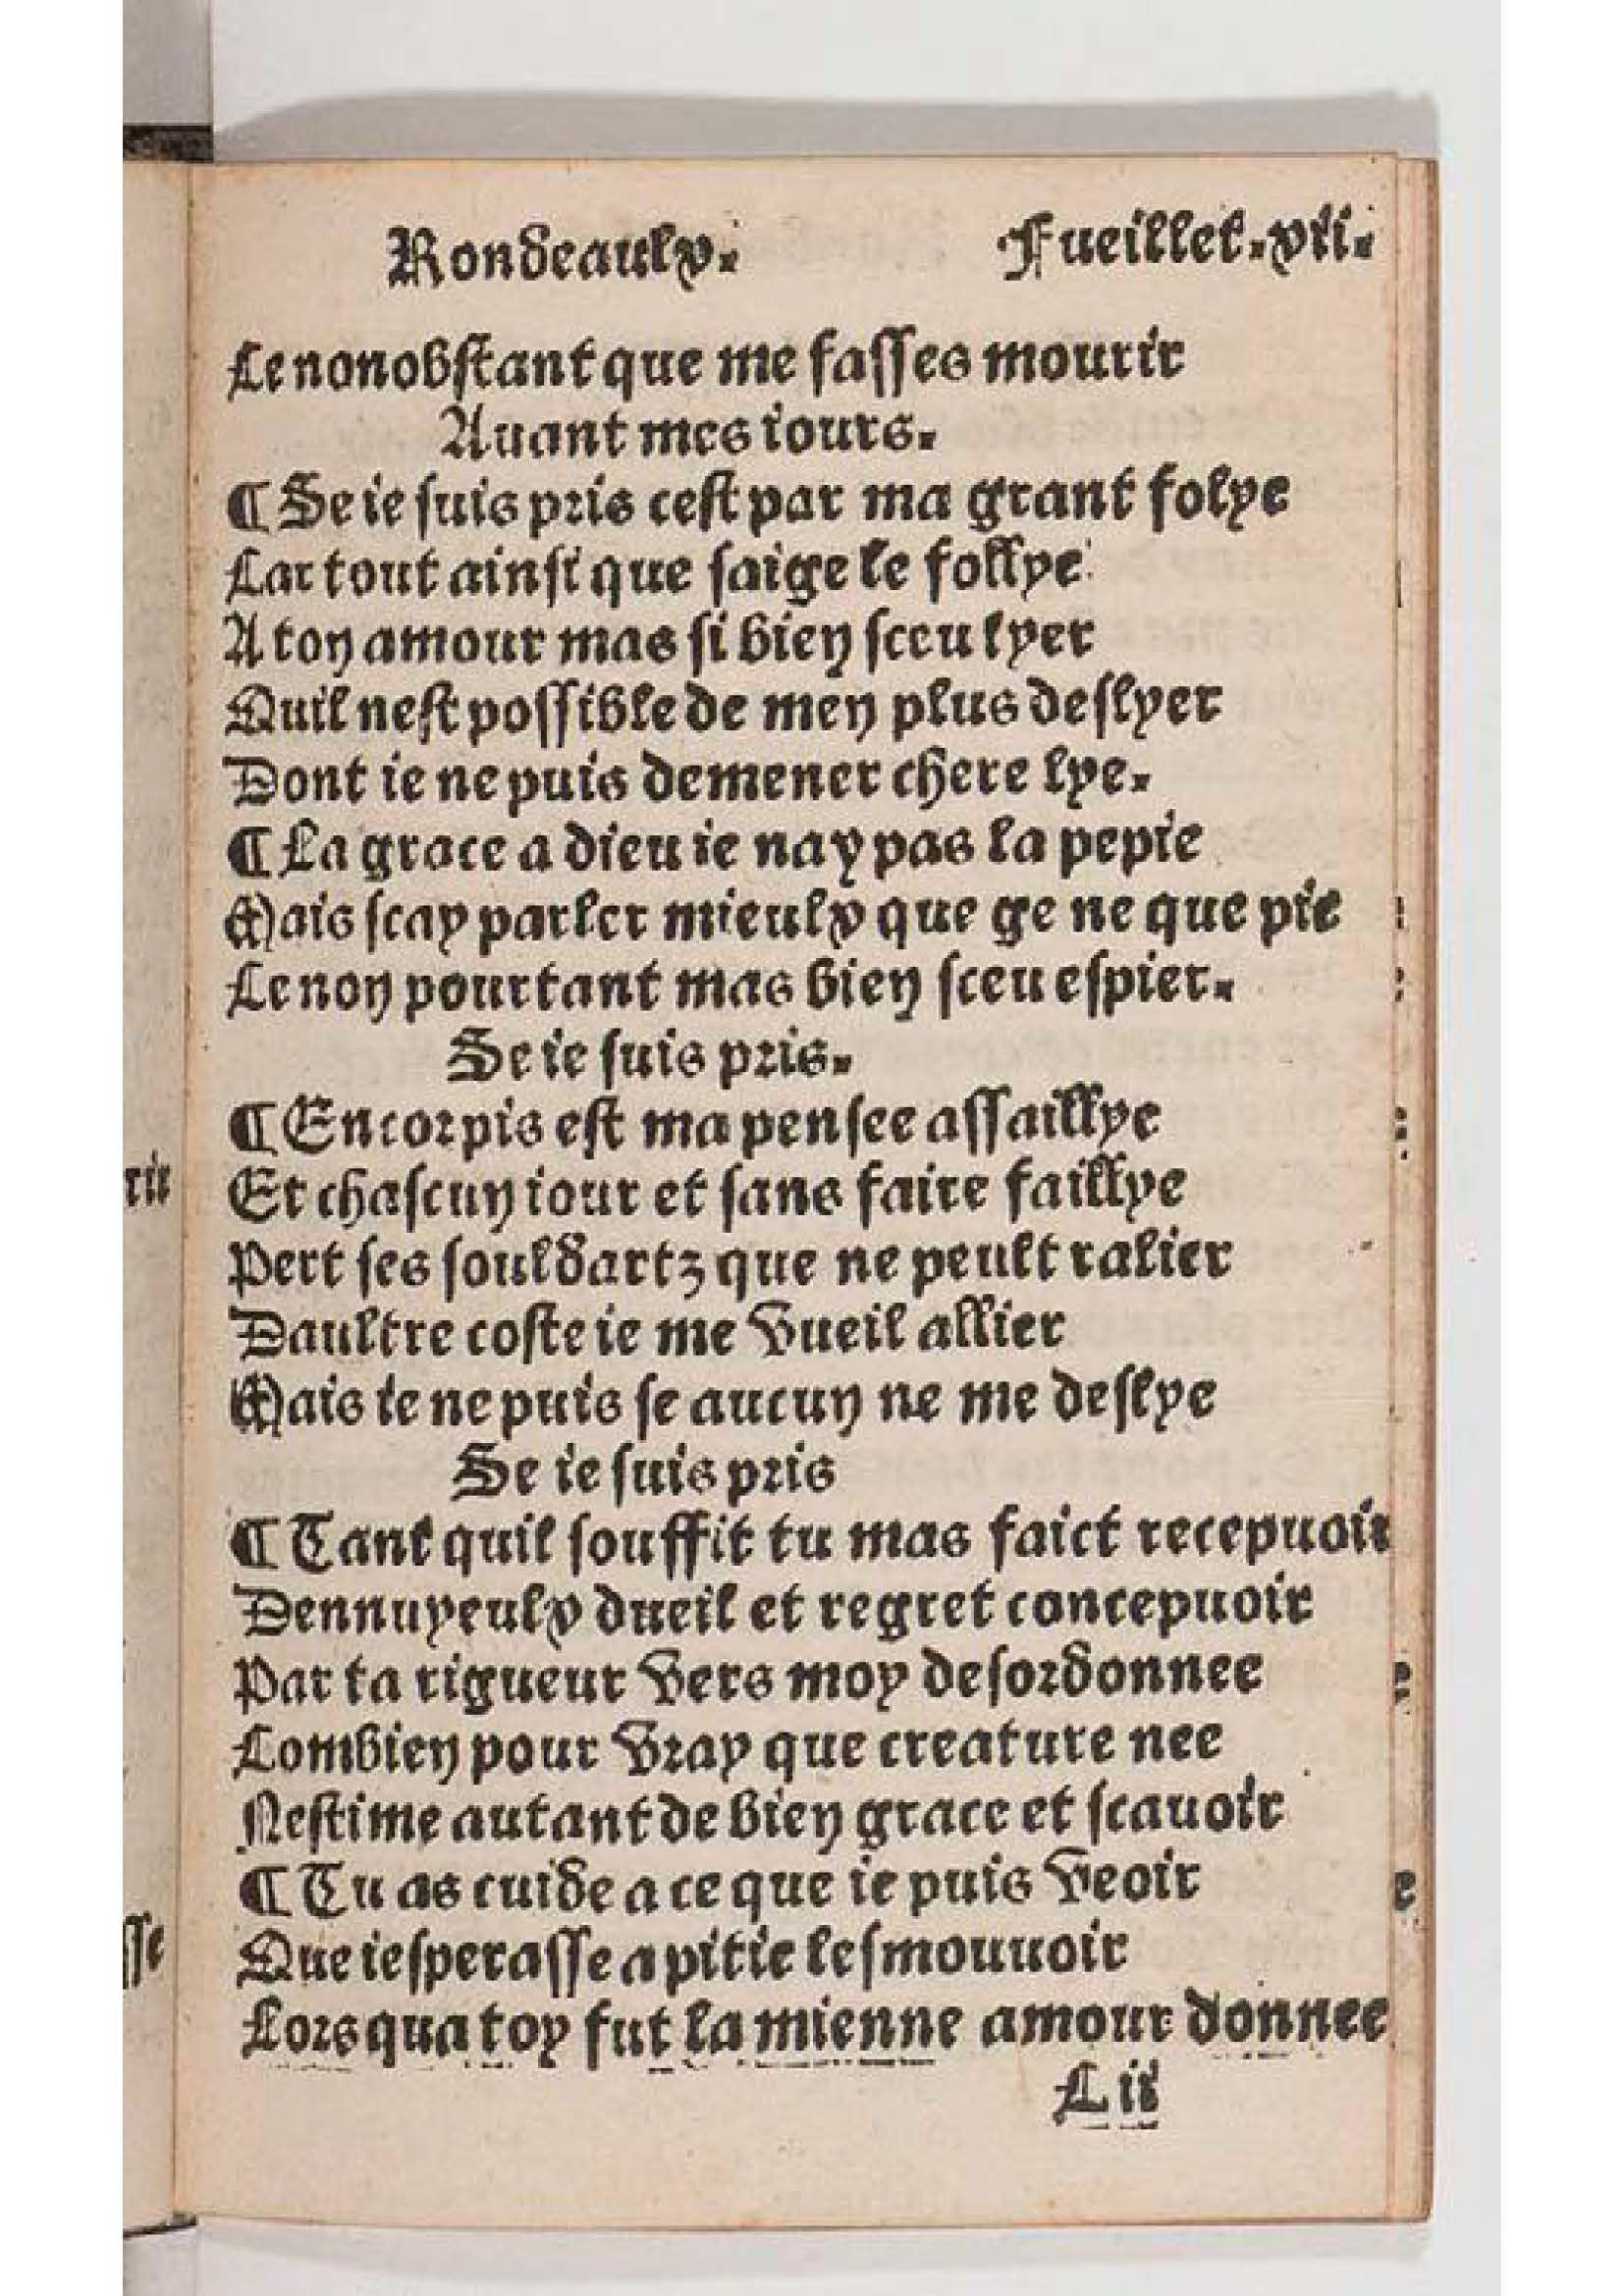 Rondeaulx. Fueillet.vii.
Ce nonobstant que me fasses mourir
Auant mes iours.
¶ Se ie suis pris cest par ma grant folye
Car tout ainsi que saige le follye
A ton amour mas si bien sceu lyer
Quil nest possible de men plus deslyer
Dont ie ne puis demener chere lye.
¶ La grace a dieu ie nay pas la pepie
Mais scay parler mieulx que ge ne que pie
Ce non pourtant mas bien sceu espier.
Se ie suis pris.
¶ Encor pis est ma pensee assaillye
Et chascun iour et sans faire faillye
Pert ses souldartz que ne peult ralier
Daultre coste ie me vueil allier
Mais ie ne puis se aucun ne me deslye
Se ie suis pris
¶ Tant quil souffit tu mas faict recepuoir
Dennuyeulx dueil et regret concepuoir
Par ta rigueur vers moy desordonnee
Combien pour vray que creature nee
Nestime autant de bien grace et scauoir
¶ Tu as cuide a ce que ie puis veoir
Que iesperasse a pitie lesmouuoir
Lors qua toy fut la mienne amour donnee
C ii